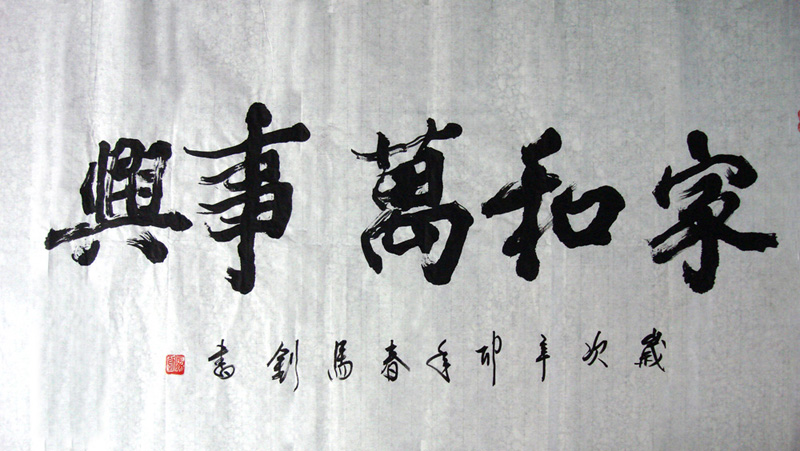 家和萬事興
歲次辛卯年春馬劍書